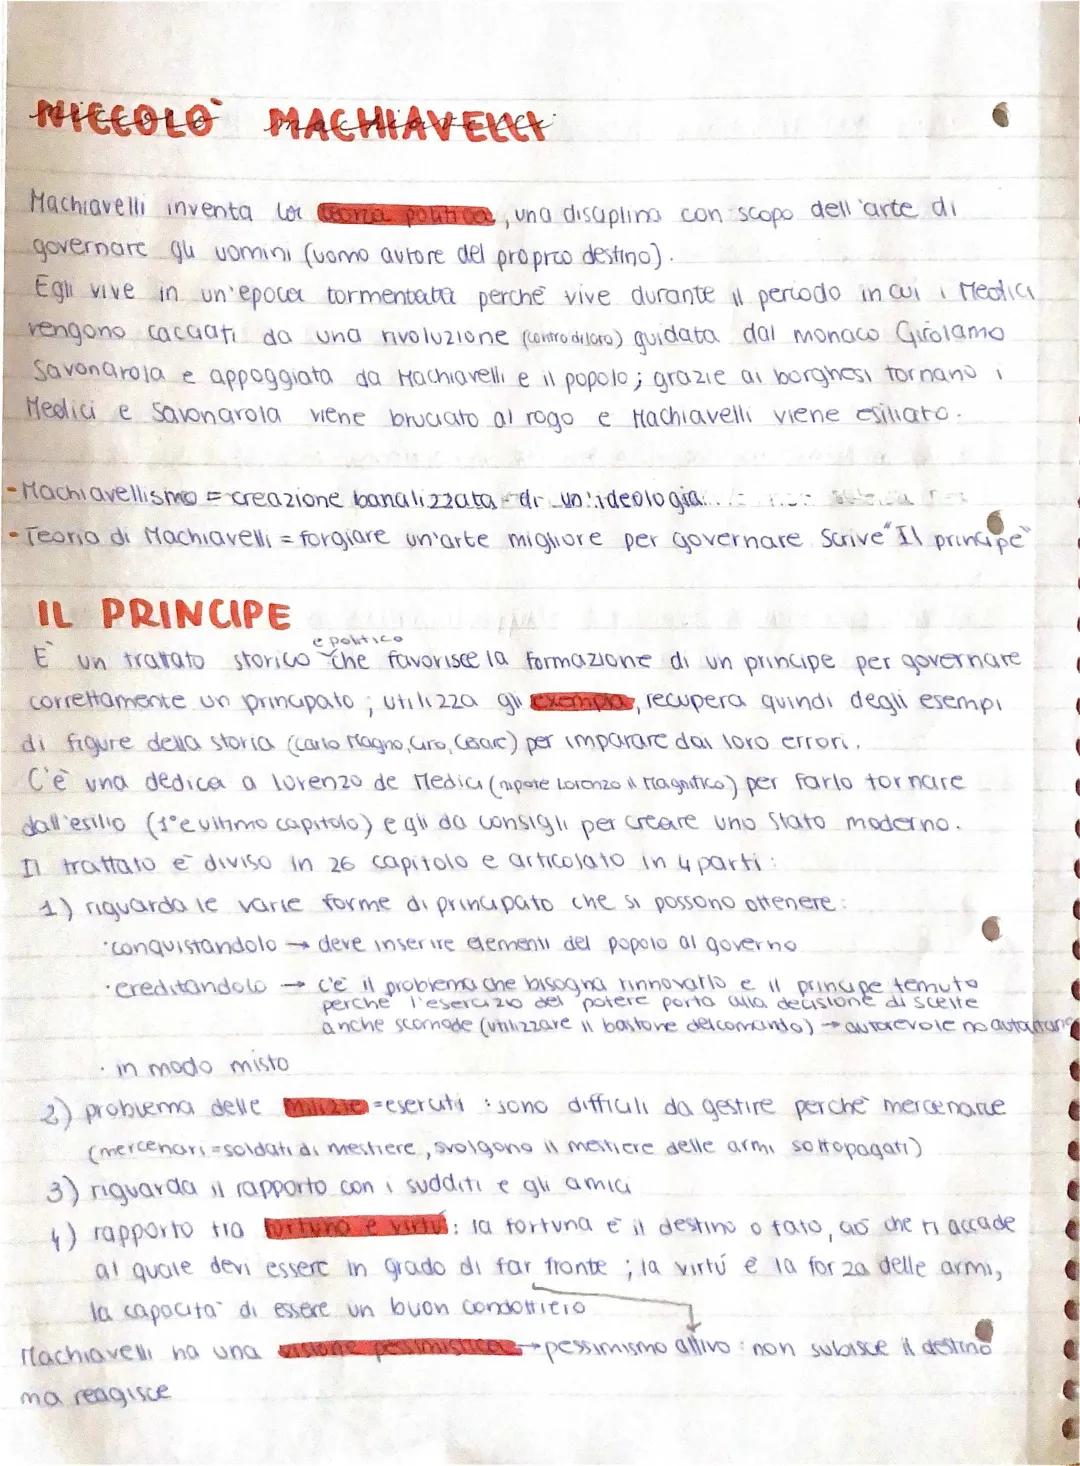 NICCOLÒ MACHIAVELLI
Machiavelli inventa la teoria politica, una disciplina con scopo dell'arte di
governare gli uomini (uomo autore del proprio destino).
Egli vive in un'epoca tormentata perchè vive durante il periodo in cui i Medici
vengono cacciati da una rivoluzione (contro di loro) guidata dal monaco Girolamo
Savonarola e appoggiata da Machiavelli e il popolo; grazie ai borghesi tornano i
Medici e Savonarola viene bruciato al rogo e Machiavelli viene esiliato.
- Machiavellismo = creazione banalizzata di un'ideologia
- Teoria di Machiavelli = forgiare un'arte migliore per governare. Scrive "Il principe"
IL PRINCIPE
È un trattato storico e politico che favorisce la formazione di un principe per governare
correttamente un principato; utilizza gli exempla, recupera quindi degli esempi
di figure della storia (Carlo Magno, Ciro, Cesare) per imparare dai loro errori.
C'è una dedica a Lorenzo de Medici (nipote Lorenzo il Magnifico) per farlo tornare
dall'esilio (1° e ultimo capitolo) e gli da consigli per creare uno Stato moderno.
Il trattato è diviso in 26 capitolo e articolato in 4 parti:
1) riguarda le varie forme di principato che si possono ottenere:
· conquistandolo → deve inserire elementi del popolo al governo
· ereditandolo → c'è il problema che bisogna rinnovarlo e il principe temuto
perchè l'esercizio del potere porta alla decisione di scelte
anche scomode (utilizzare il bastone del comando) → autorevole no
· in modo misto
2) problema delle milizie = eserciti : sono difficili da gestire perchè mercenarie
(mercenari = soldati di mestiere, svolgono il mestiere delle armi sottopagati)
3) riguarda il rapporto con i sudditi e gli amici
4) rapporto tra fortuna e virtù: la fortuna è il destino o fato, ciò che ti accade
al quale devi essere in grado di far fronte; la virtú è la forza delle armi,
la capacità di essere un buon condottiero
Machiavelli ha una visione pessimistica → pessimismo attivo: non subisce il destino
ma reagisce